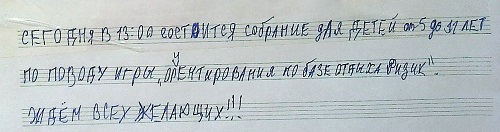 СЕГОДНЯ В 13:00 СОСТОИТСЯ СОБРАНИЕ ДЛЯ ДЕТЕЙ от 5 до 11 ЛЕТ
ПО ПОВОДУ ИГРЫ „ОРЕНТИРОВАНИЯ ПО БАЗЕ ОТДЫХА ФИЗИК".
ЖДЁМ ВСЕХ ЖЕЛАЮЩИХ!!!